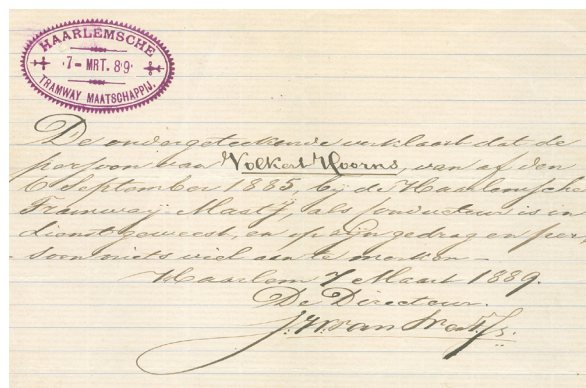 HAARLEMSCHE
7 - MRT. 89
TRAMWAY MAATSCHAPPIJ.
De ondergeteekende verklaart dat de
persoon van Volkert Hoorns, van af den
6 September 1885, bij de Haarlemsche
Tramwaij Maatij, als conducteur is in
dienst geweest, en op zijn gedrag en per,
soon niets viel aan te merken -
Haarlem 7 Maart 1889.
De Directeur.